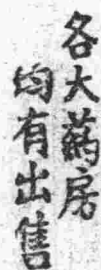 各大葯房
均有出售